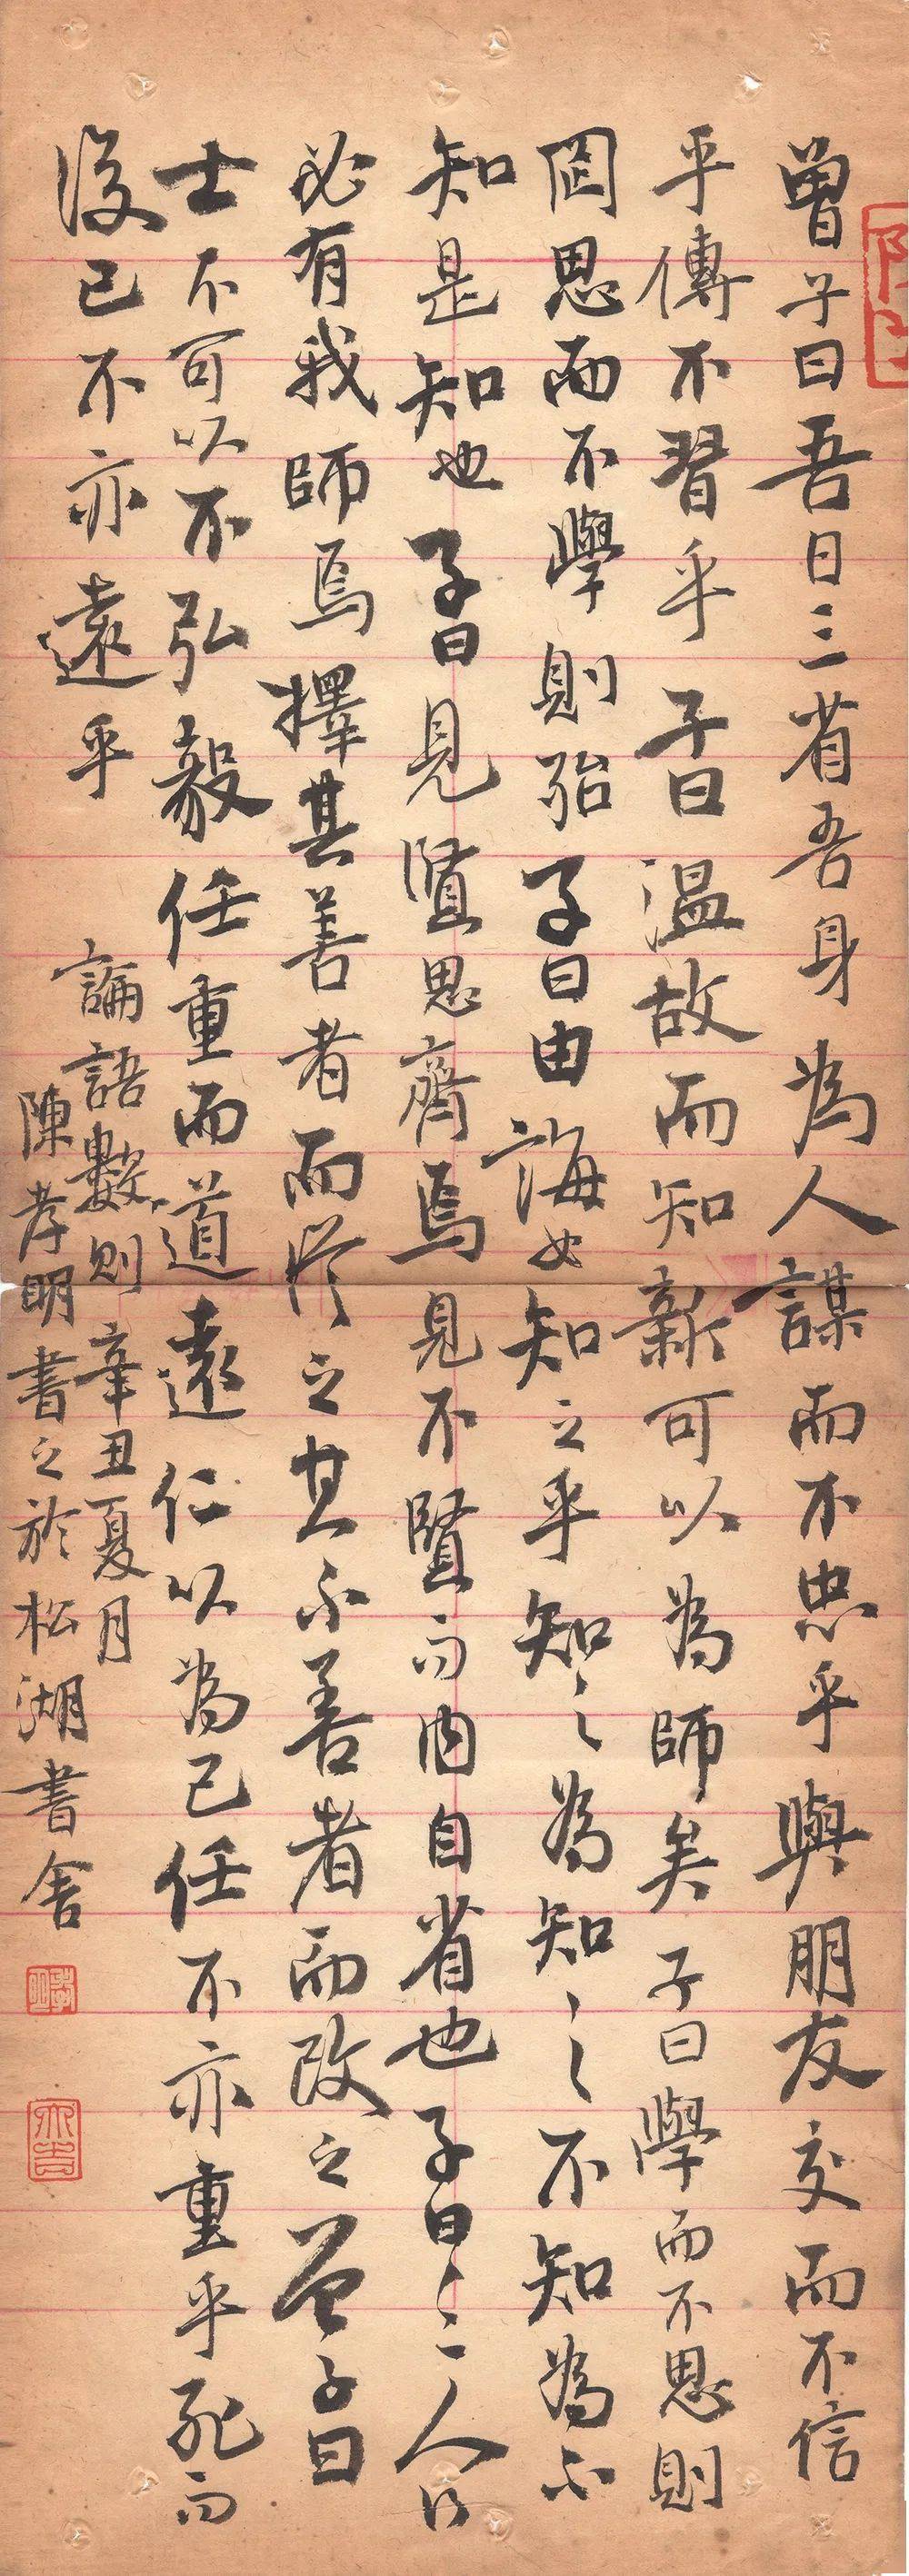 曾子曰吾日三省吾身為人謀而不忠乎與朋友交而不信
乎傳不習乎子曰溫故而知新可以為師矣子曰學而不思則
罔思而不學則殆子曰由誨女知之乎知之為知之不知為不
知是知也子曰見賢思齊焉見不賢而內自省也子曰三人行
必有我師焉擇其善者而從之其不善者而改之曾子曰
士不可以不弘毅任重而道遠仁以為己任不亦重乎死而
後已不亦遠乎
論語數則辛丑夏月
陳孝明書之於松湖書舍